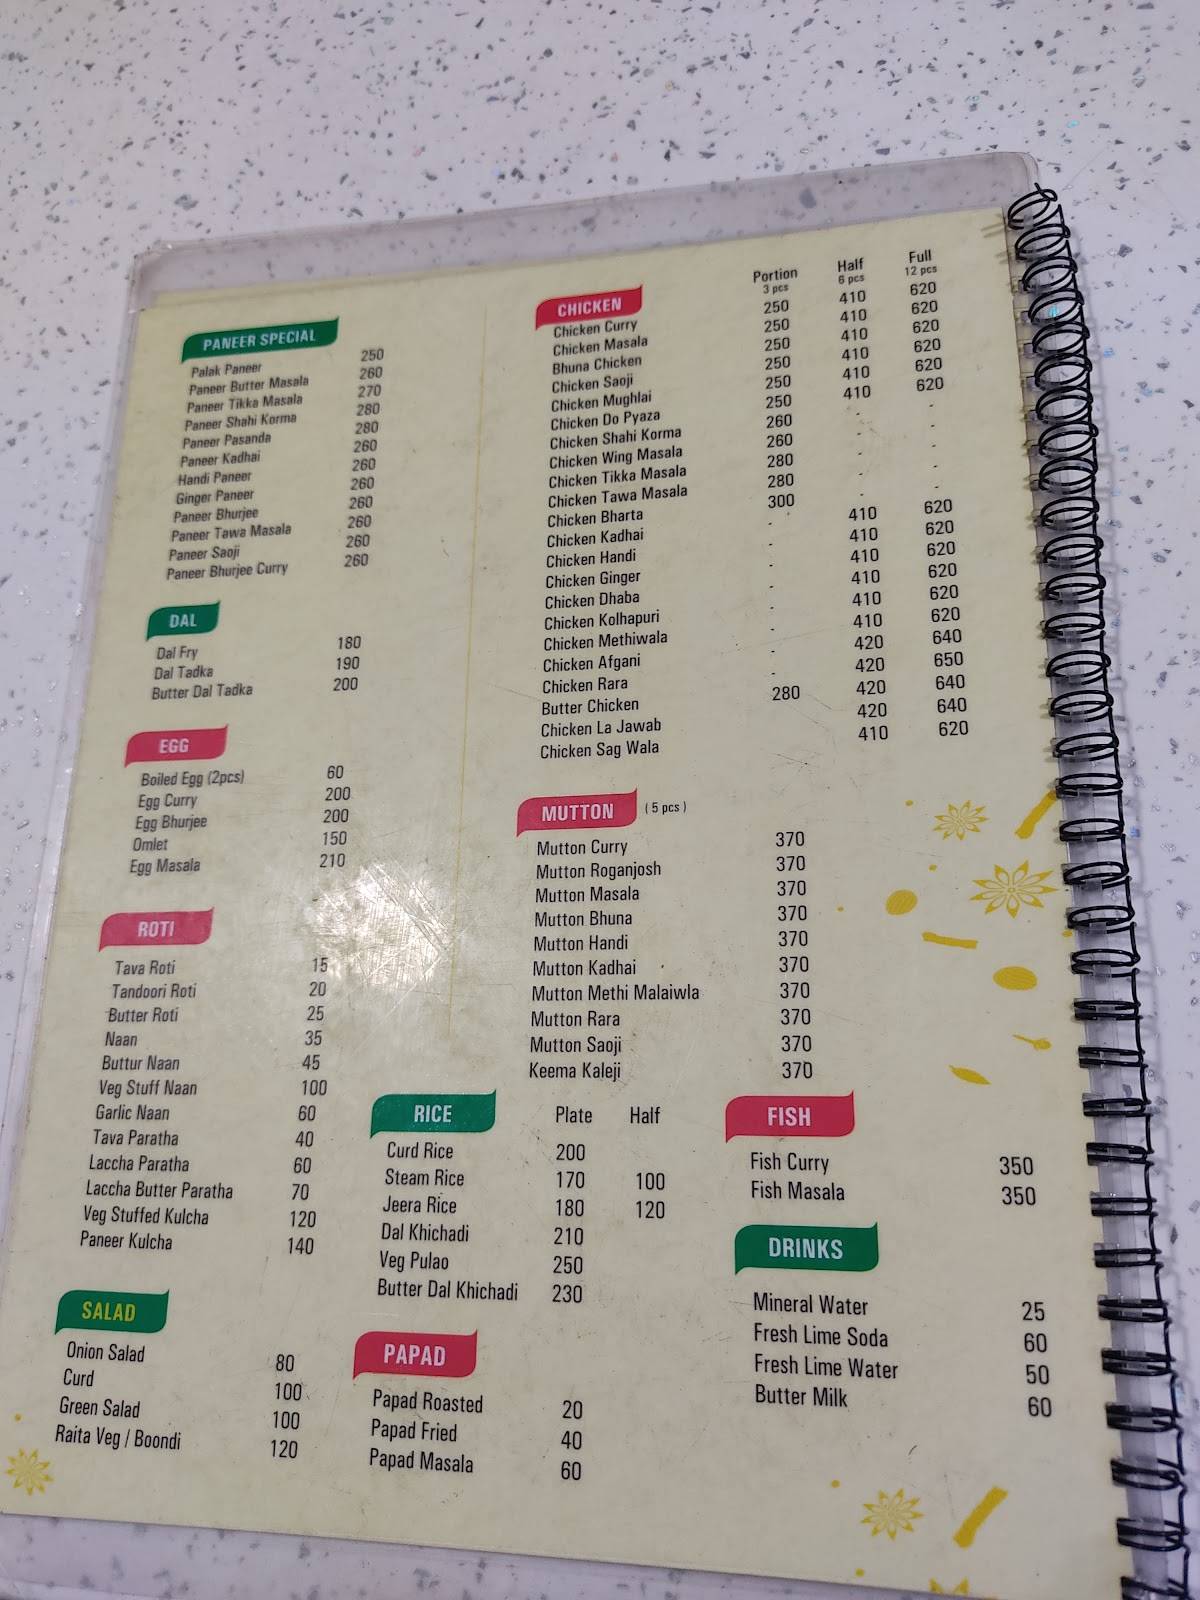 PANEER SPECIAL
Palak Paneer 250
Paneer Butter Masala 260
Paneer Tikka Masala 270
Paneer Shahi Korma 280
Paneer Pasanda 280
Paneer Kadhai 260
Handi Paneer 260
Ginger Paneer 260
Paneer Bhurjee 260
Paneer Tawa Masala 260
Paneer Saoji 260
Paneer Bhurjee Curry 260
DAL
Dal Fry 180
Dal Tadka 190
Butter Dal Tadka 200
EGG
Boiled Egg (2pcs) 60
Egg Curry 200
Egg Bhurjee 200
Omlet 150
Egg Masala 210
ROTI
Tava Roti 15
Tandoori Roti 20
Butter Roti 25
Naan 35
Buttur Naan 45
Veg Stuff Naan 100
Garlic Naan 60
Tava Paratha 40
Laccha Paratha 60
Laccha Butter Paratha 70
Veg Stuffed Kulcha 120
Paneer Kulcha 140
SALAD
Onion Salad 80
Curd 100
Green Salad 100
Raita Veg / Boondi 120
CHICKEN Portion Half Full
3 pcs 6 pcs 12 pcs
Chicken Curry 250 410 620
Chicken Masala 250 410 620
Bhuna Chicken 250 410 620
Chicken Saoji 250 410 620
Chicken Mughlai 250 410 620
Chicken Do Pyaza 250 410 620
Chicken Shahi Korma 260 - -
Chicken Wing Masala 260 - -
Chicken Tikka Masala 280 - -
Chicken Tawa Masala 280 - -
Chicken Bharta 300 - -
Chicken Kadhai - 410 620
Chicken Handi - 410 620
Chicken Ginger - 410 620
Chicken Dhaba - 410 620
Chicken Kolhapuri - 410 620
Chicken Methiwala - 410 620
Chicken Afgani - 420 640
Chicken Rara - 420 650
Butter Chicken 280 420 640
Chicken La Jawab 420 640
Chicken Sag Wala 410 620
MUTTON (5 pcs)
Mutton Curry 370
Mutton Roganjosh 370
Mutton Masala 370
Mutton Bhuna 370
Mutton Handi 370
Mutton Kadhai 370
Mutton Methi Malaiwla 370
Mutton Rara 370
Mutton Saoji 370
Keema Kaleji 370
RICE Plate Half
Curd Rice 200
Steam Rice 170 100
Jeera Rice 180 120
Dal Khichadi 210
Veg Pulao 250
Butter Dal Khichadi 230
PAPAD
Papad Roasted 20
Papad Fried 40
Papad Masala 60
FISH
Fish Curry 350
Fish Masala 350
DRINKS
Mineral Water 25
Fresh Lime Soda 60
Fresh Lime Water 50
Butter Milk 60